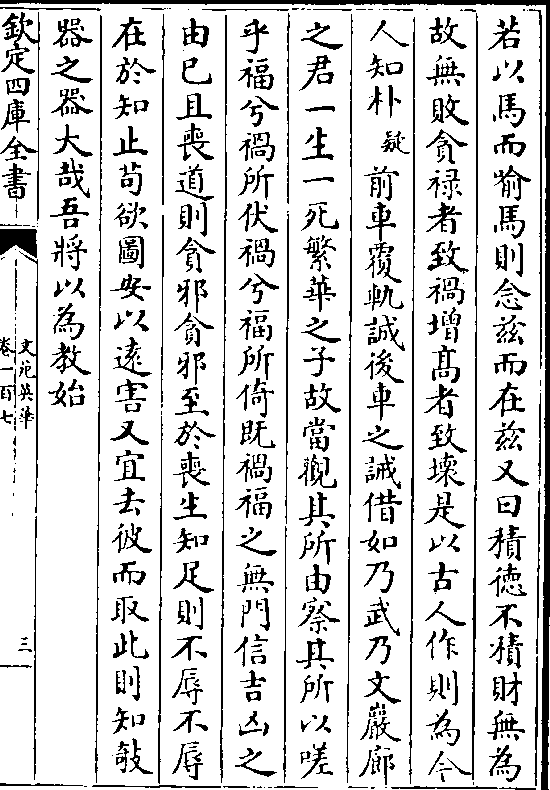 若以馬而喻馬則念兹而在兹又曰積德不積財無為
故無敗貪祿者致禍增髙者致壞是以古人作則為今
人知朴疑前車覆軌誠後車之誡借如乃武乃文巖廊
之君一生一死繁華之子故當觀其所由察其所以嗟
乎福兮禍所伏禍兮福所倚既禍福之無門信吉凶之
由已且喪道則貪邪貪邪至於喪生知足則不辱不辱
在於知止苟欲圖安以逺害又宜去彼而取此則知攲
器之器大哉吾將以為教始
欽定四庫全書
文苑英華
卷一百七
三